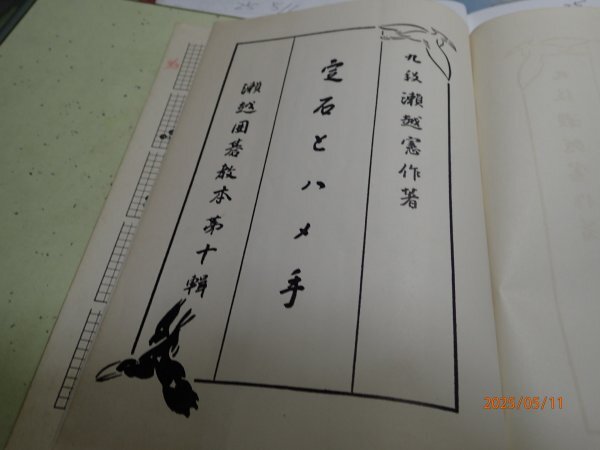 九段 瀬越憲作著
定石とハメ手
瀬越囲碁教本第十輯
2025/05/11